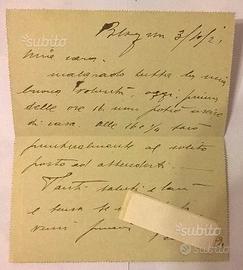 3/4/21
Mia cara,
malgrado tutta la mia
buona volontà, oggi prima
delle ore 16 non potrò uscire
di casa alle 16 ¼ sarò
puntualmente al solito
posto ad attenderti.
Tanti saluti e
e scusa se
subito
subito